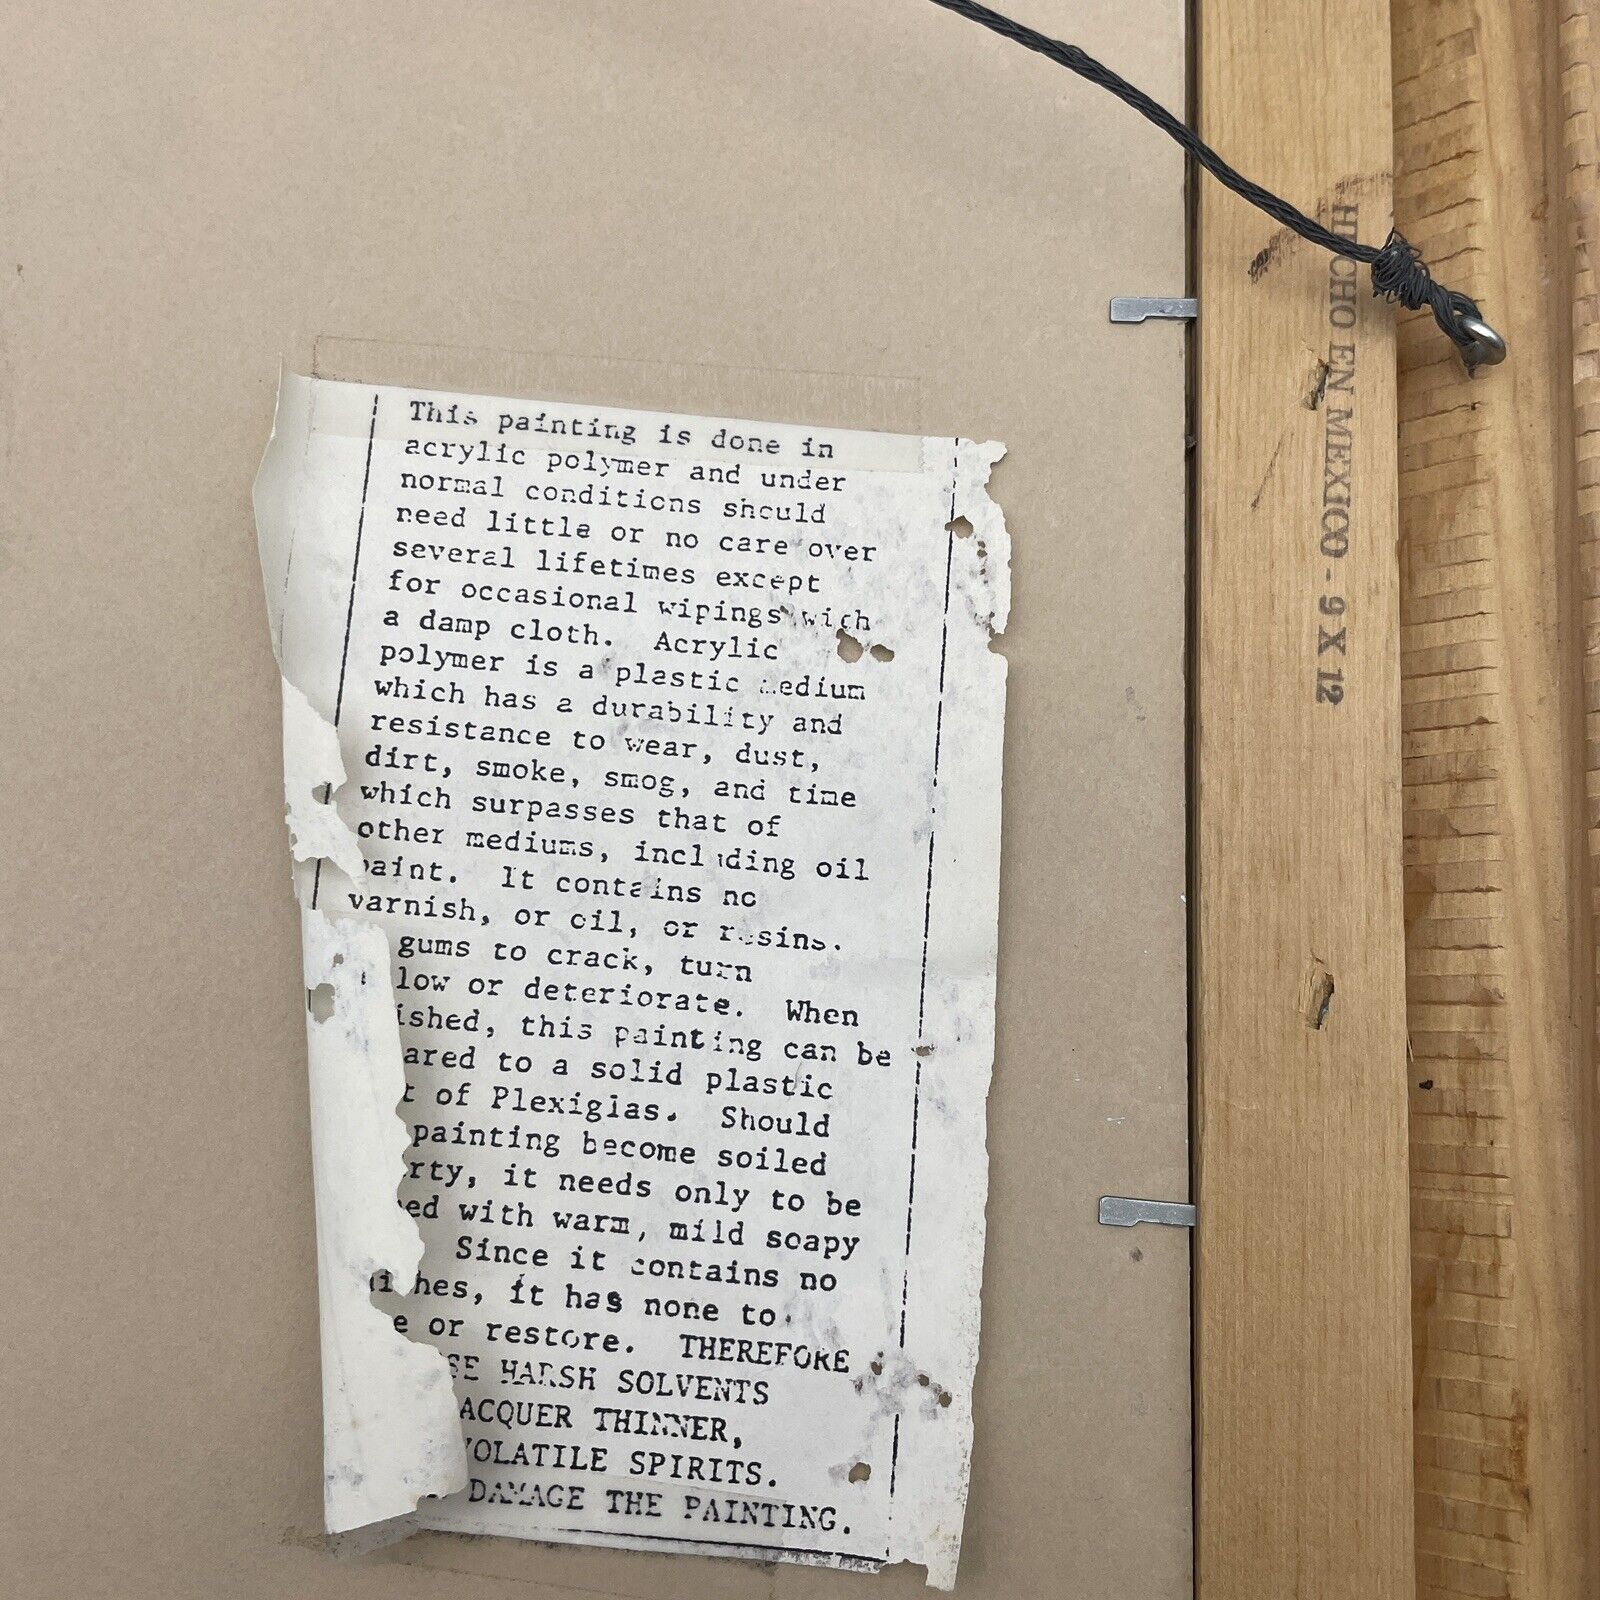 This painting is done in
acrylic polymer and under
normal conditions should
need little or no care over
several lifetimes except
for occasional wipings with
a damp cloth. Acrylic
polymer is a plastic medium
which has a durability and
resistance to wear, dust,
dirt, smoke, smog, and time
which surpasses that of
other mediums, including oil
paint. It contains no
varnish, or oil, or resins.
gums to crack, turn
low or deteriorate. When
ished, this painting can be
ared to a solid plastic
t of Plexiglas. Should
painting become soiled
rty, it needs only to be
ed with warm, mild soapy
Since it contains no
hes, it has none to
e or restore. THEREFORE
SE HARSH SOLVENTS
ACQUER THINNER,
VOLATILE SPIRITS.
DAMAGE THE PAINTING.
HECHO EN MEXICO - 9 X 12